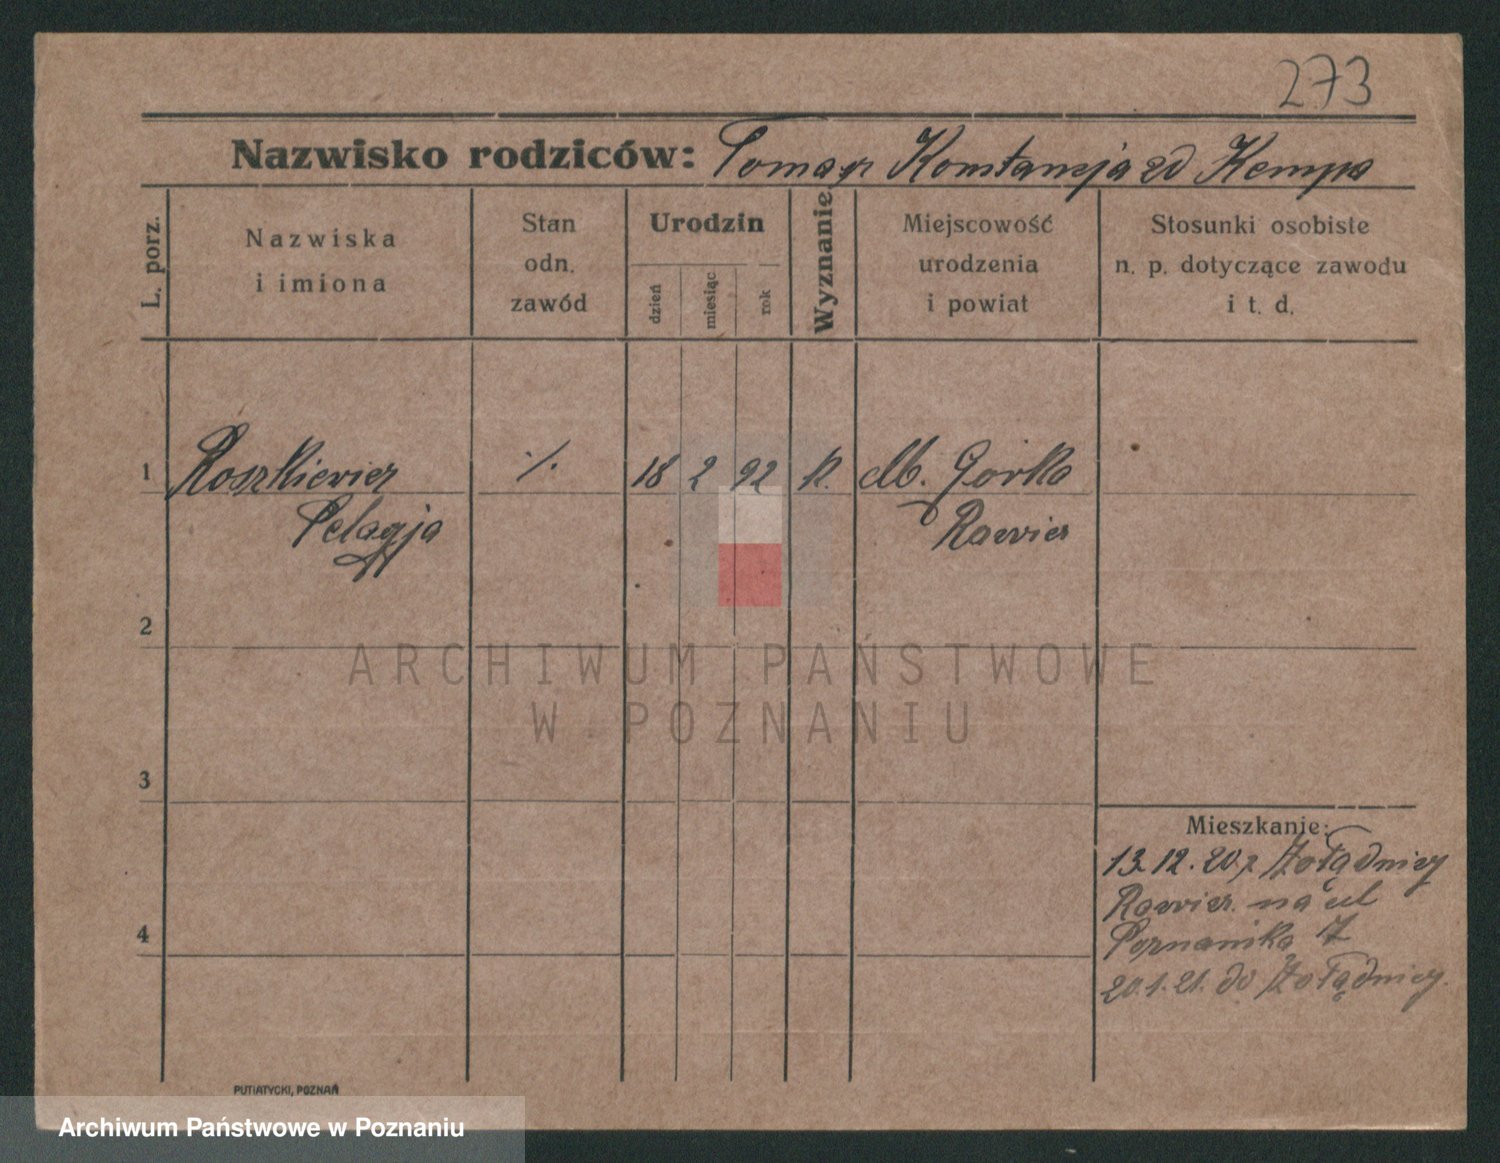 273
Nazwisko rodziców: Tomasz Konstancja zd Kempa
L. porz.
Nazwiska
i imiona
Stan
odn.
zawód
Urodzin
dzień
miesiąc
rok
Wyznanie
Miejscowość
urodzenia
i powiat
Stosunki osobiste
n. p. dotyczące zawodu
i t. d.
1 Roszkiewicz ·/. 18 2 92 k. M. Gorka
Pelagja Rawicz
2
ARCHIWUM PAŃSTWOWE
W POZNANIU
3
Mieszkanie:
13.12.20. z Żołądnicy
Rawicz. na ul
4
Poznanska 7
20.1.21. do Żołądnicy.
PUTIATYCKI, POZNAŃ
Archiwum Państwowe w Poznaniu